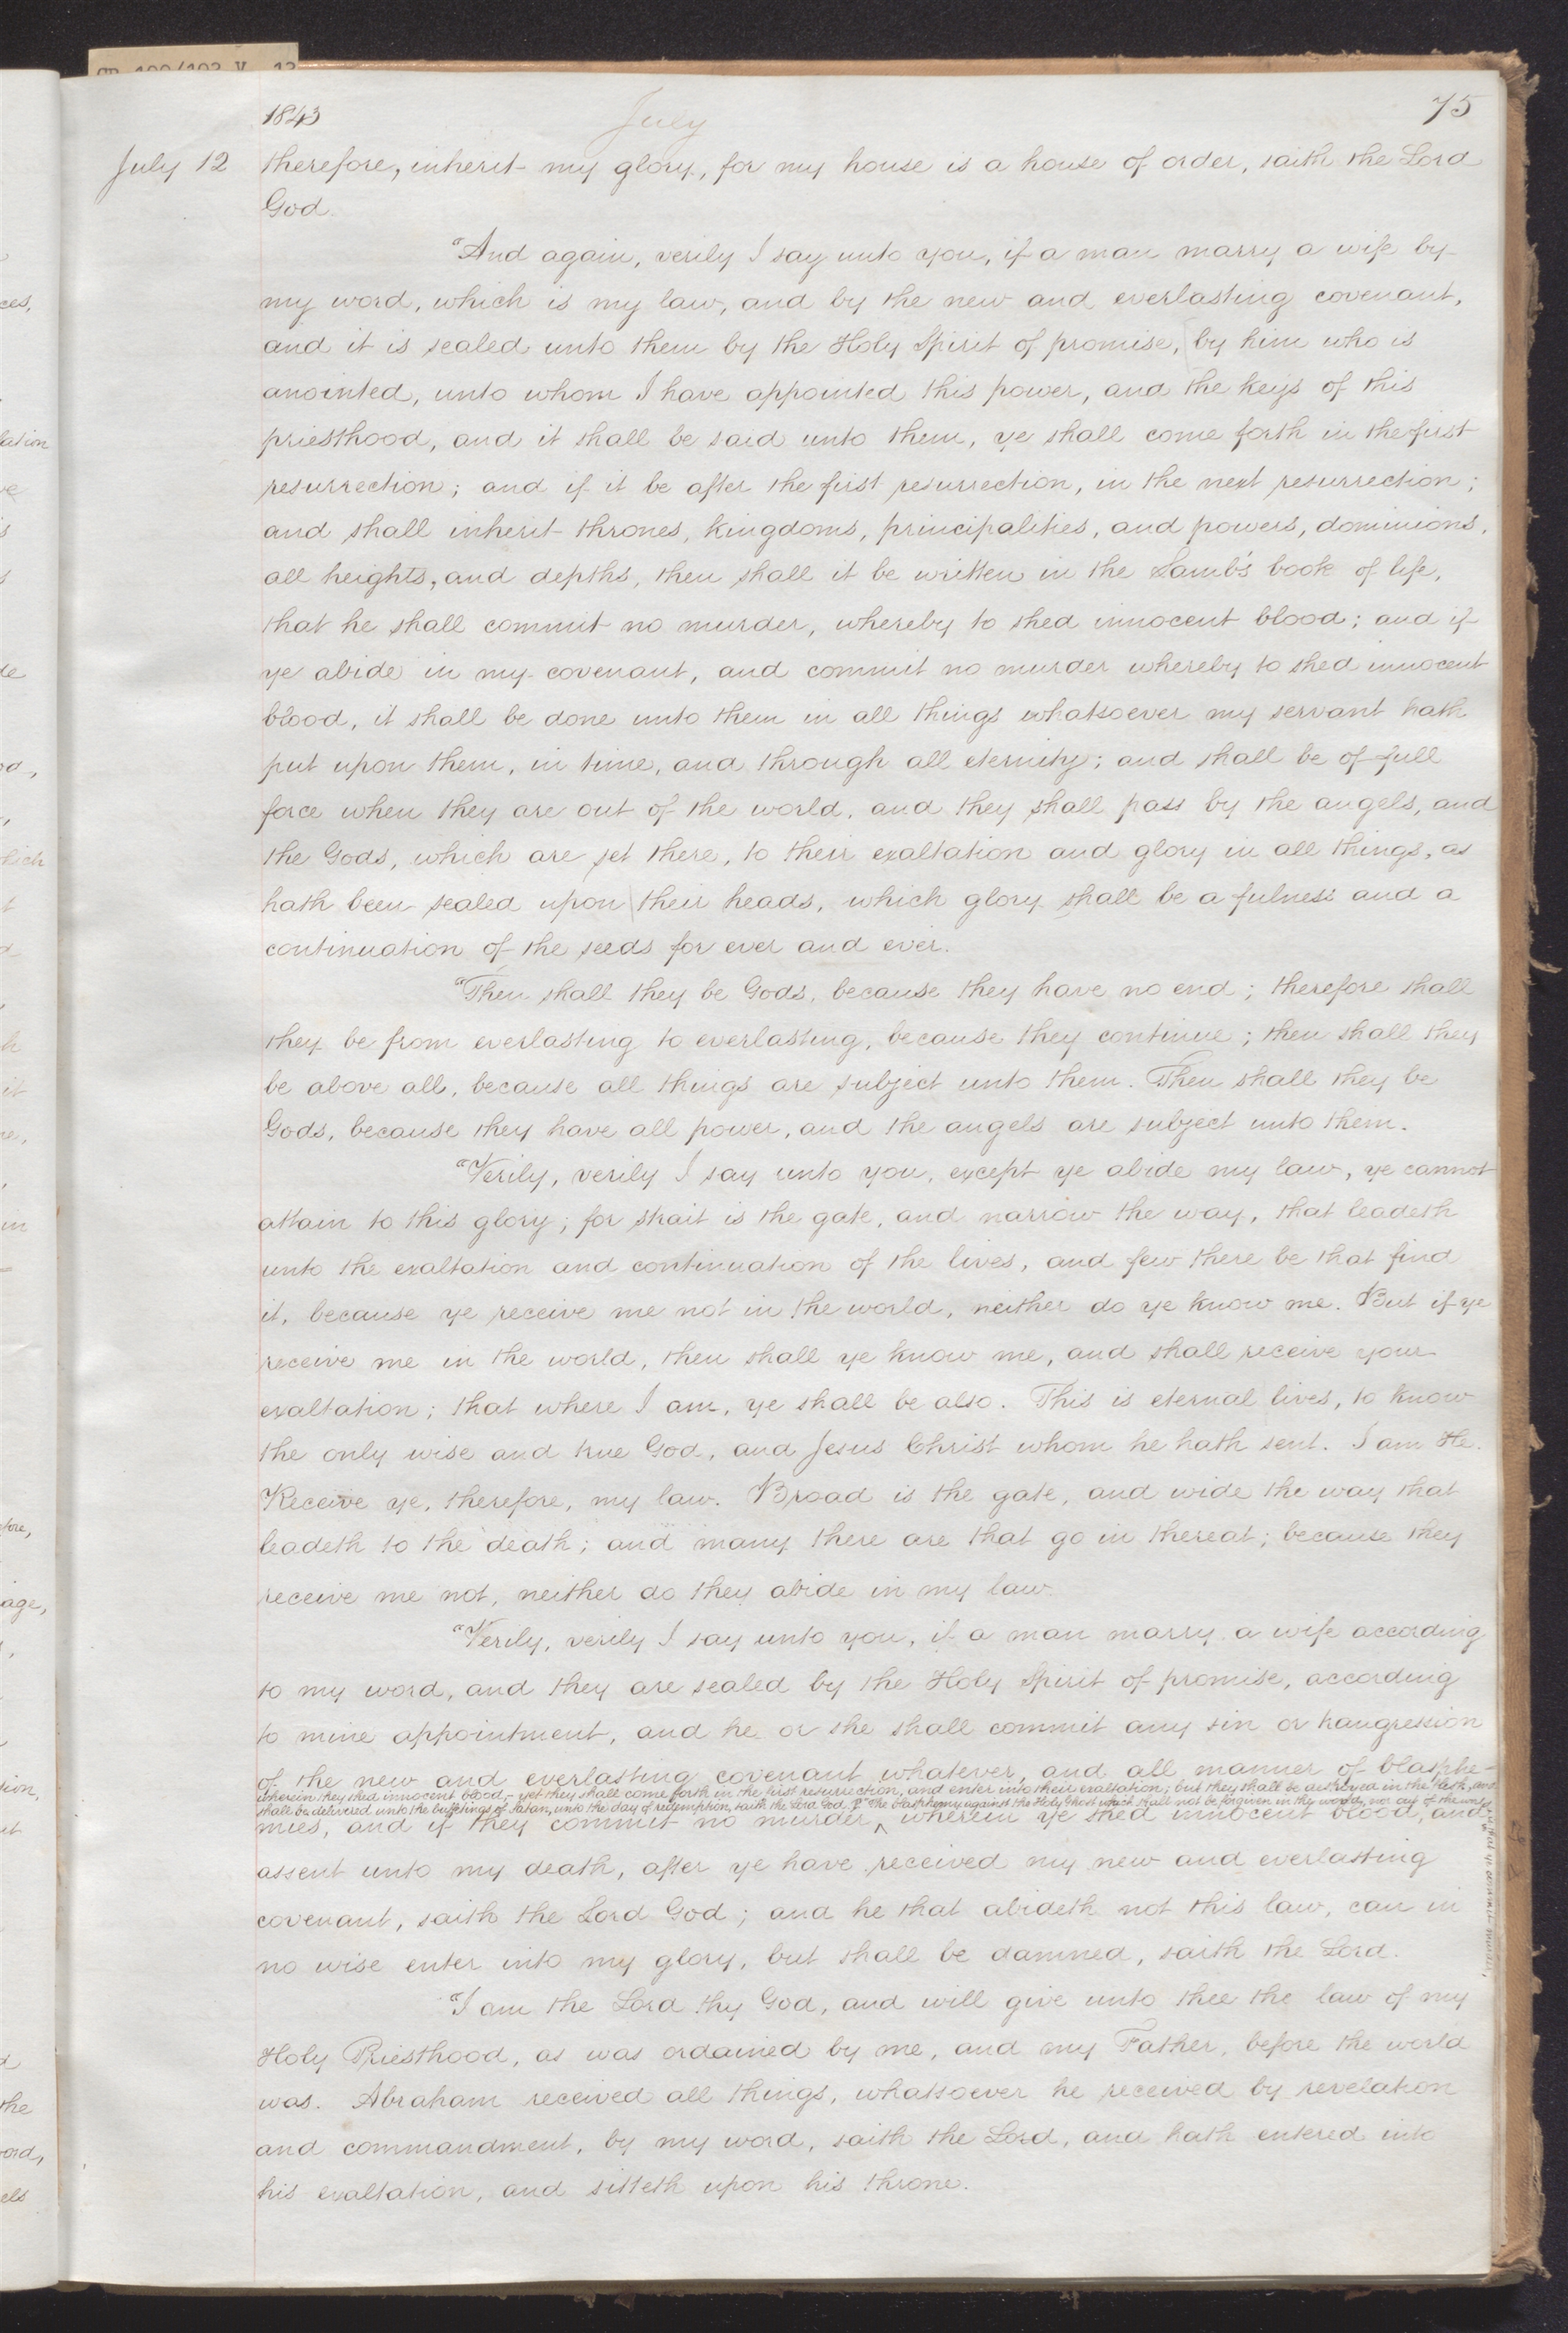 1843 July 75
July 12 therefore, inherit my glory, for my house is a house of order, saith the Lord
God.
"And again, verily I say unto you, if a man marry a wife by
my word, which is my law, and by the new and everlasting covenant,
and it is sealed unto them by the Holy Spirit of promise, by him who is
anointed, unto whom I have appointed this power, and the keys of this
priesthood, and it shall be said unto them, ye shall come forth in the first
resurrection; and if it be after the first resurrection, in the next resurrection;
and shall inherit thrones, kingdoms, principalities, and powers, dominions,
all heights, and depths, then shall it be written in the Lamb's book of life,
that he shall commit no murder, whereby to shed innocent blood; and if
ye abide in my covenant, and commit no murder whereby to shed innocent
blood, it shall be done unto them in all things whatsoever my servant hath
put upon them, in time, and through all eternity; and shall be of full
force when they are out of the world, and they shall pass by the angels, and
the Gods, which are set there, to their exaltation and glory in all things, as
hath been sealed upon their heads, which glory shall be a fulness and a
continuation of the seeds for ever and ever.
"Then shall they be Gods, because they have no end; therefore shall
they be from everlasting to everlasting, because they continue; then shall they
be above all, because all things are subject unto them. Then shall they be
Gods, because they have all power, and the angels are subject unto them.
"Verily, verily I say unto you, except ye abide my law, ye cannot
attain to this glory; for strait is the gate, and narrow the way, that leadeth
unto the exaltation and continuation of the lives, and few there be that find
it, because ye receive me not in the world, neither do ye know me. But if ye
receive me in the world, then shall ye know me, and shall receive your
exaltation; that where I am, ye shall be also. This is eternal lives, to know
the only wise and true God, and Jesus Christ whom he hath sent. I am He.
Receive ye, therefore, my law. Broad is the gate, and wide the way that
leadeth to the death; and many there are that go in thereat; because they
receive me not, neither do they abide in my law.
"Verily, verily I say unto you, if a man marry a wife according
to my word, and they are sealed by the Holy Spirit of promise, according
to mine appointment, and he or she shall commit any sin or transgression
of the new and everlasting covenant whatever, and all manner of blasphe-
wherein they shed innocent blood,- yet they shall come forth in the first resurrection, and enter into their exaltation; but they shall be destroyed in the flesh, and
shall be delivered unto the buffetings of Satan, unto the day of redemption, saith the Lord God. ¶ "The blasphemy against the Holy Ghost which shall not be forgiven in the world, nor out of the world
mies, and if they commit no murder, ^ wherein ye shed innocent blood, and
assent unto my death, after ye have received my new and everlasting
covenant, saith the Lord God; and he that abideth not this law, can in
no wise enter into my glory, but shall be damned, saith the Lord.
"I am the Lord thy God, and will give unto thee the law of my
Holy Priesthood, as was ordained by me, and my Father, before the world
was. Abraham received all things, whatsoever he received by revelation
and commandment, by my word, saith the Lord, and hath entered into
his exaltation, and sitteth upon his throne.